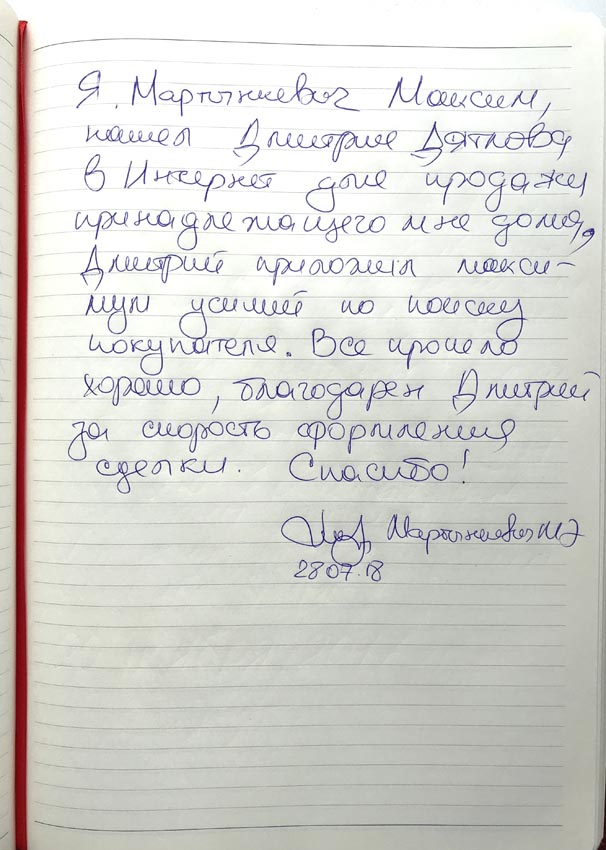 Я, Мартынкевич Максим,
нашел Дмитрия Дятлова
в Интернет для продажи
принадлежащего мне дома,
Дмитрий приложил макси-
мум усилий по поиску
покупателя. Все прошло
хорошо, благодарен Дмитрий
за скорость оформления
сделки. Спасибо!
Мартынкевич М Э
28 07.18